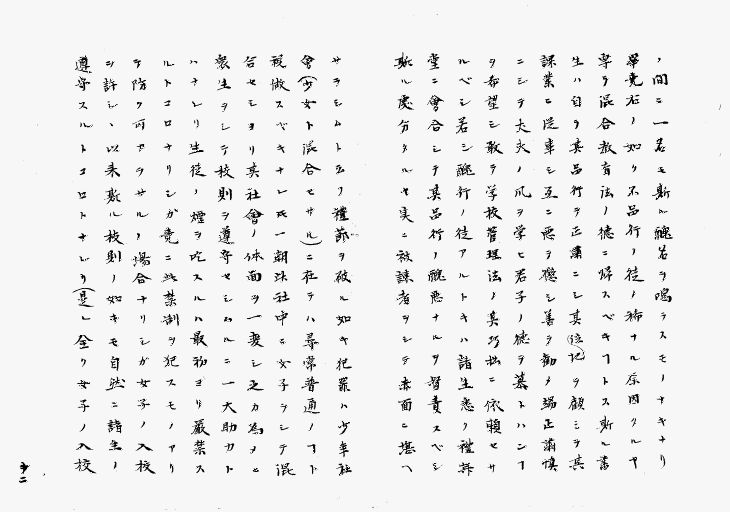 ノ間ニ一名モ斯ル醜名ヲ鳴ラスモノナキナリ
畢竟右ノ如ク不品行ノ徒ノ稀ナル原因タルヤ
専ラ混合教育法ノ徳ニ帰スベキコトス斯ル書
生ハ自ラ其品行ヲ正肅ニシ其位記ヲ顧ミテ其
課業ニ従事シ互ニ悪ヲ懲シ善ヲ勧メ端正肅慎
ニシテ大丈ノ風ヲ学ヒ君子ノ徳ヲ慕トハンコ
ヲ希望シ敢テ学校管理法ノ其巧拙ニ依頼セサ
ルベシ若シ醜行ノ徒アルトキハ諸生悉ク礼拝
堂ニ會合シテ其品行ノ醜悪ナルヲ督責スベシ
斯ル處分タルヤ実ニ被譴者ヲシテ赤面ニ堪ヘ
サラシムトス
禮節ヲ破ル如キ犯罪ハ少年社
會(少女ト混合セサル)ニ在テハ尋常普通ノコト
視做スベキナレ𪜈一朝此社中ニ女子ヲシテ混
合セシヨリ其社會ノ体面ヲ一変シ之カ為メニ
衆生ヲシテ校則ヲ遵守セシムルニ一大助力ト
ハナレリ生徒ノ煙ヲ吃スルハ最初ヨリ嚴禁ス
ルトコロナリシガ竟ニ此禁制ヲ犯スモノアリ
テ防ク可ラサルノ場合ナリシガ女子ノ入校
ヲ許シヽ以来斯ル校則ノ如キモ自然ニ諸生ノ
遵守スルトコロトナレリ(是レ全ク女子ノ入校